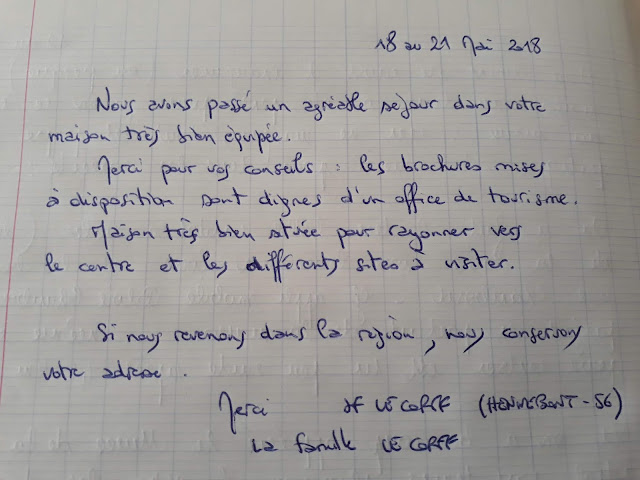 18 au 21 Mai 2018
Nous avons passé un agréable séjour dans votre
maison très bien équipée.
Merci pour vos conseils : les brochures mises
à disposition sont dignes d'un office de tourisme.
Maison très bien située pour rayonner vers
le centre et les différents sites à visiter.
Si nous revenons dans la région, nous conservons
votre adresse.
Merci JF LE CORFF (HENNEBONT - 56)
La famille LE CORFF